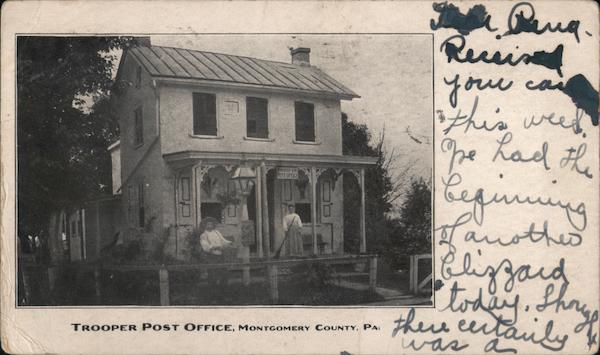 Trooper Post Office, Montgomery County, Pa.
Received
your card
this week.
We had the
beginning
of another
blizzard
today. I
there certainly
was a